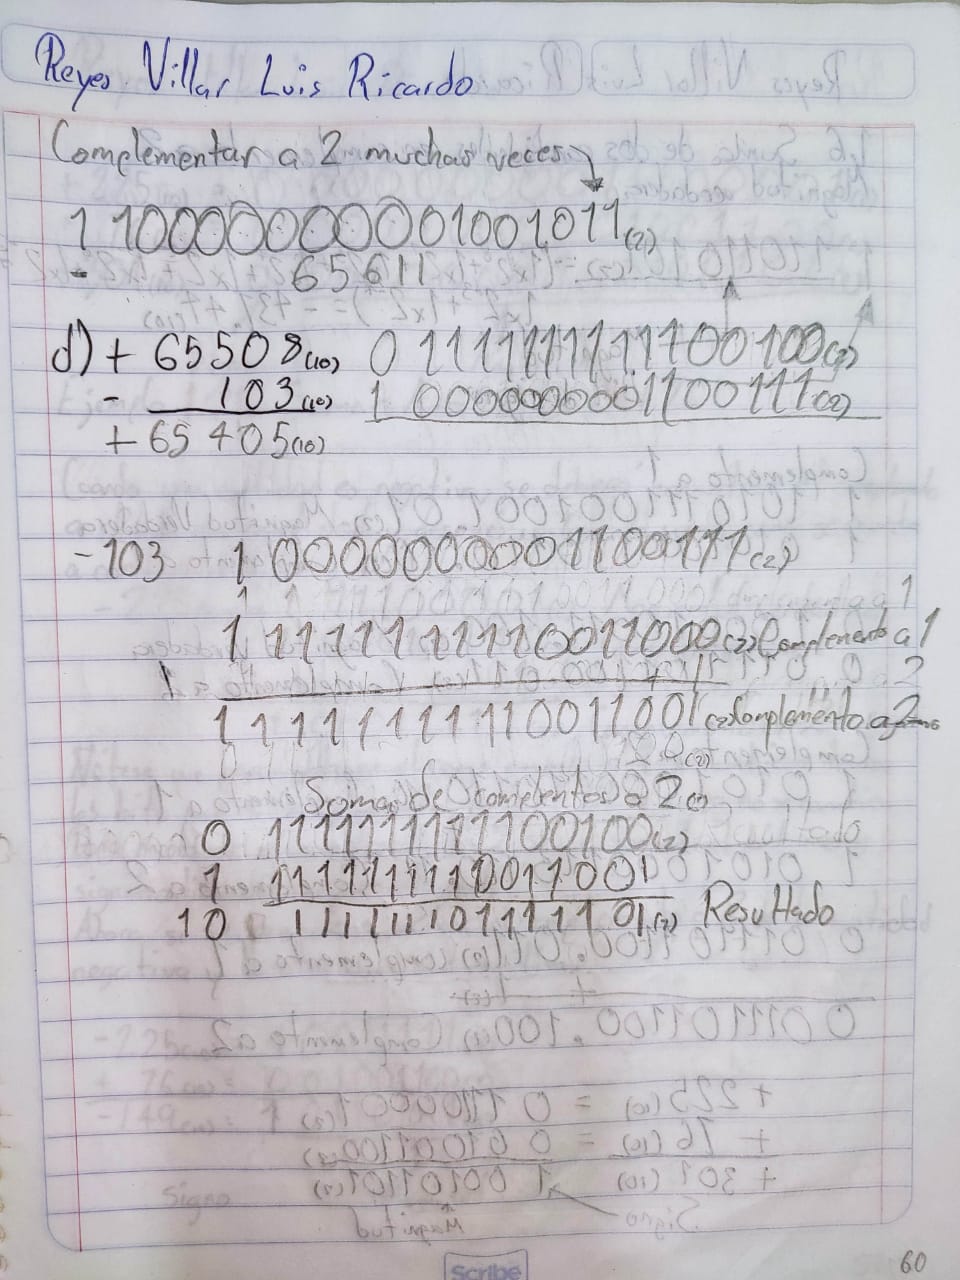 Reyes Villar Luis Ricardo
Complementar a 2 muchas veces
1 10000000001001011(2)
- 65611
d) + 65508(10) 0 1111111111100100(2)
- 103(10) 1 0000000001100111(2)
+ 65405(10)
-103 1 0000000001100111(2)
1 1111111110011000(2) Complemento a 1
1
1 1111111110011001(2) Complemento a 2
Suma de complentos a 2
0 1111111111100100(2)
1 1111111110011001
10 1111111101111101(2) Resultado
Scribe
60